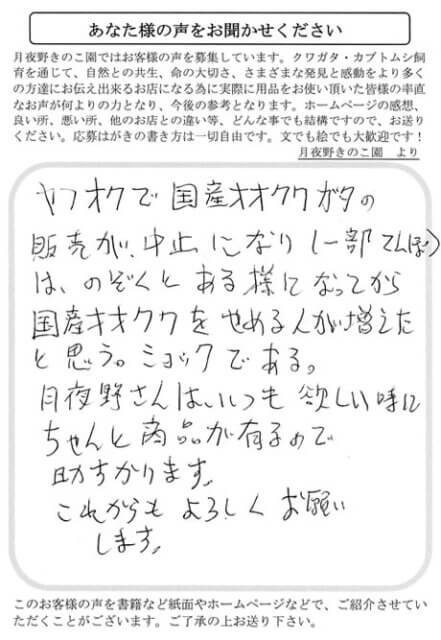 あなた様の声をお聞かせください
月夜野きのこ園ではお客様の声を募集しています。クワガタ・カブトムシ飼
育を通じて、自然との共生、命の大切さ、さまざまな発見と感動をより多く
の方達にお伝え出来るお店になる為に実際に用品をお使い頂いた皆様の率直
なお声が何よりの力となり、今後の参考となります。ホームページの感想、
良い所、悪い所、他のお店との違い等、どんな事でも結構ですので、お送り
ください。応募はがきの書き方は一切自由です。文でも絵でも大歓迎です！
月夜野きのこ園　より
ヤフオクで国産オオクワガタの
販売が、中止になり（一部てんぽ）
は、のぞくとある様になってから
国産オオクワをやめる人が増えた
と思う。ショックである。
月夜野さんはいつも欲しい時に
ちゃんと商品が有るので
助ちかります。
これからもよろしくお願い
します。
このお客様の声を書籍など紙面やホームページなどで、ご紹介させてい
ただくことがございます。ご了承の上お送り下さい。